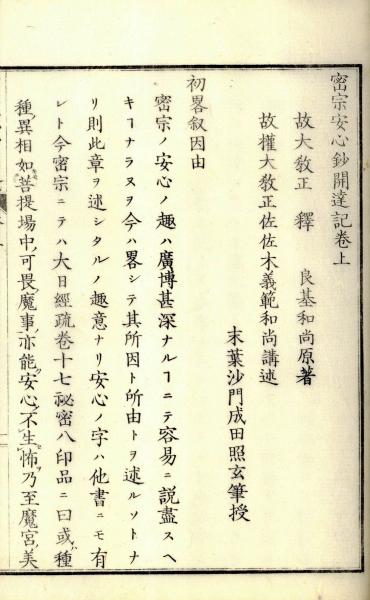 密宗安心鈔開達記卷上
故大教正釋　良基和尚原著
故權大教正佐佐木義範和尚講述
末葉沙門成田照玄筆授
初畧叙因由
密宗ノ安心ノ趣ハ廣博甚深ナルヿニテ容易ニ說盡スヘ
キヿナラヌヲ今ハ畧シテ其所因ト所由トヲ述ルソトナ
リ則此章ヲ述シタルノ趣意ナリ安心ノ字ハ他書ニモ有
レト今密宗ニテハ大日經疏卷十七祕密八印品ニ曰或ハ種
種ノ異相如菩提場中ノ可畏魔事亦能ク安心シ不生怖乃至魔宮美